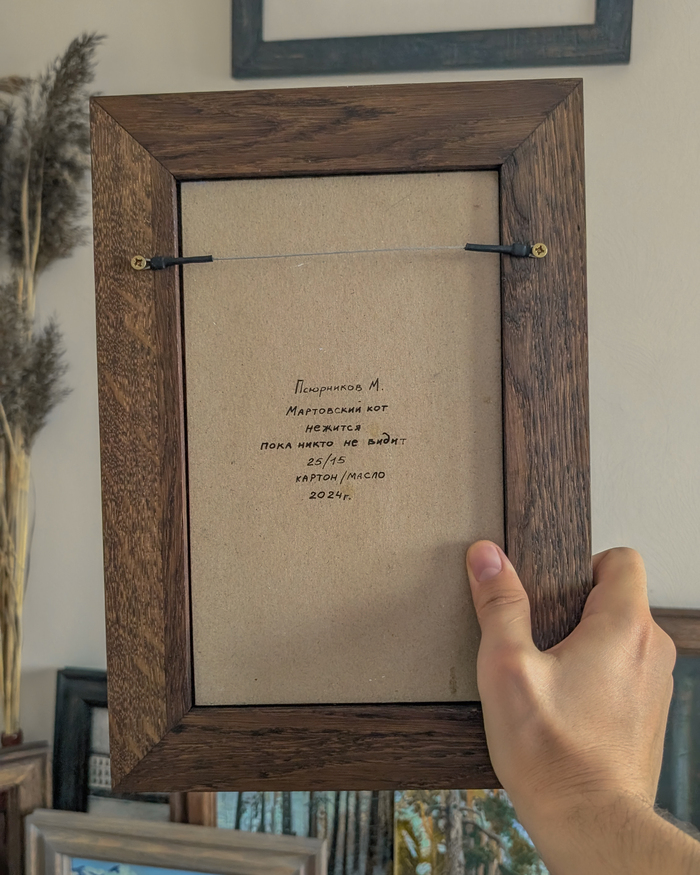 Псюрников М.
Мартовский кот
нежится
пока никто не видит
25/15
картон/масло
2024г.